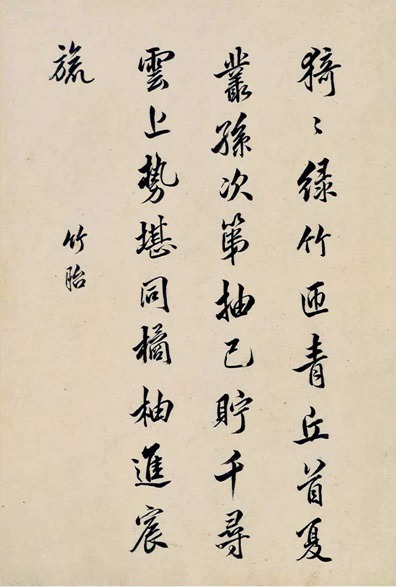 猗〻绿竹匝青丘首夏
叢孫次第抽已貯千尋
雲上勢堪同橘柚進宸
旒
竹胎